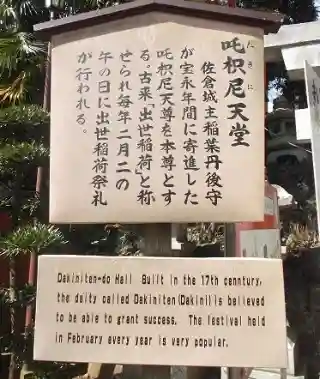 吒枳尼天堂
だきに
佐倉城主稲葉丹後守
が宝永年間に寄進した
吒枳尼天尊を本尊とす
る。古来「出世稲荷」と称
せられ毎年二月二の
午の日に出世稲荷祭礼
が行われる。
Dakiniten-do Hall Built in the 17th cenntury,
the daity called Dakiniten (Dakini) is believed
to be able to grant success. The festival held
in February every year is very populer.